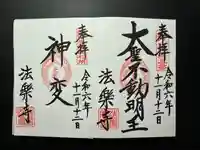 奉拝
大聖不動明王
令和六年
十一月十二日
法樂寺
奉拝
神変
令和六年
十一月十二日
法樂寺